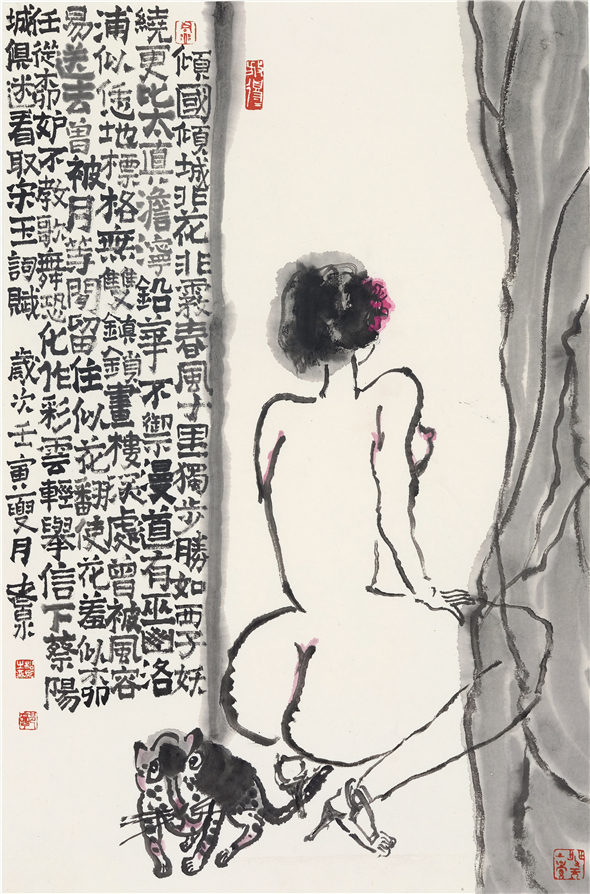 傾國傾城非花非霧春風十里獨步勝如西子妖
繞更比太真澹濘鉛華不禦漫道有巫幽洛
浦似恁地標格無雙鎮鎖畫樓深處曾被風容
易送去曾被月等閒留住似花翻翻使花羞似柳
任從柳妒不教歌舞恐化作彩雲輕舉信下蔡陽
城俱迷看取宋玉詞賦 歲次壬寅夏月